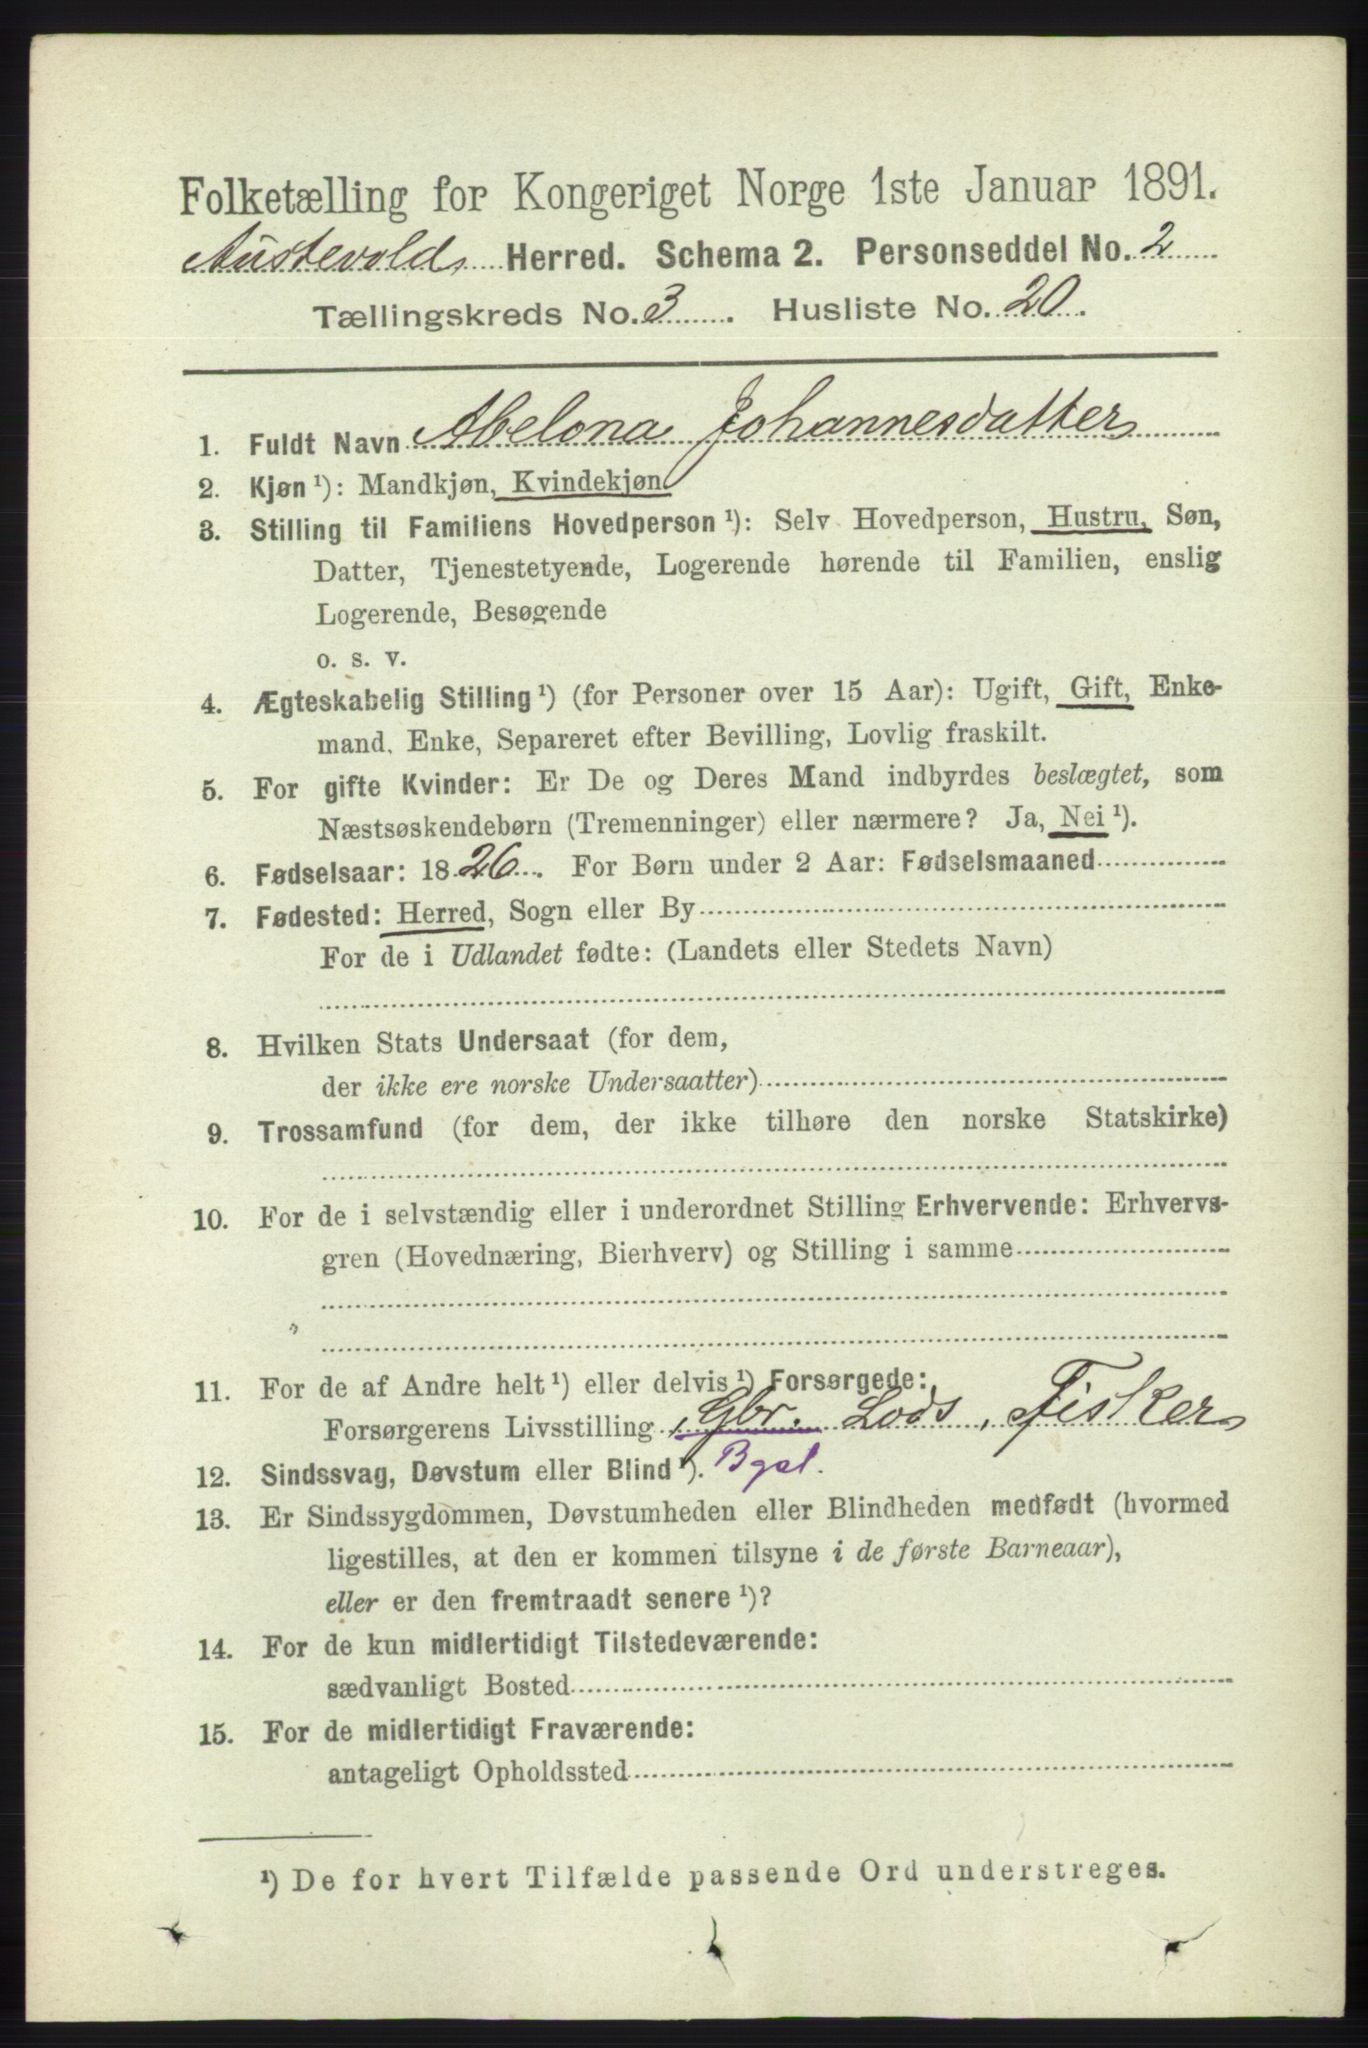 Folketælling for Kongeriget Norge 1ste Januar 1891.
Austevold Herred. Schema 2. Personseddel No. 2
Tællingskreds No. 3. Husliste No. 20.
1. Fuldt Navn Abelona Johannesdatter
2. Kjøn ¹): Mandkjøn, Kvindekjøn
3. Stilling til Familiens Hovedperson ¹): Selv Hovedperson, Hustru, Søn,
Datter, Tjenestetyende, Logerende hørende til Familien, enslig
Logerende, Besøgende
o. s. v.
4. Ægteskabelig Stilling ¹) (for Personer over 15 Aar): Ugift, Gift, Enke-
mand, Enke, Separeret efter Bevilling, Lovlig fraskilt.
5. For gifte Kvinder: Er De og Deres Mand indbyrdes beslægtet, som
Næstsøskendebørn (Tremenninger) eller nærmere? Ja, Nei ¹).
6. Fødselsaar: 1826. For Børn under 2 Aar: Fødselsmaaned
7. Fødested: Herred, Sogn eller By
For de i Udlandet fødte: (Landets eller Stedets Navn)
8. Hvilken Stats Undersaat (for dem,
der ikke ere norske Undersaatter)
9. Trossamfund (for dem, der ikke tilhøre den norske Statskirke)
10. For de i selvstændig eller i underordnet Stilling Erhvervende: Erhvervs-
gren (Hovednæring, Bierhverv) og Stilling i samme
11. For de af Andre helt ¹) eller delvis ¹) Forsørgede:
Forsørgerens Livsstilling Gbr. Lods, Fisker
12. Sindssvag, Døvstum eller Blind ¹). Bgsl.
13. Er Sindssygdommen, Døvstumheden eller Blindheden medfødt (hvormed
ligestilles, at den er kommen tilsyne i de første Barneaar),
eller er den fremtraadt senere ¹)?
14. For de kun midlertidigt Tilstedeværende:
sædvanligt Bosted
15. For de midlertidigt Fraværende:
antageligt Opholdssted
¹) De for hvert Tilfælde passende Ord understreges.